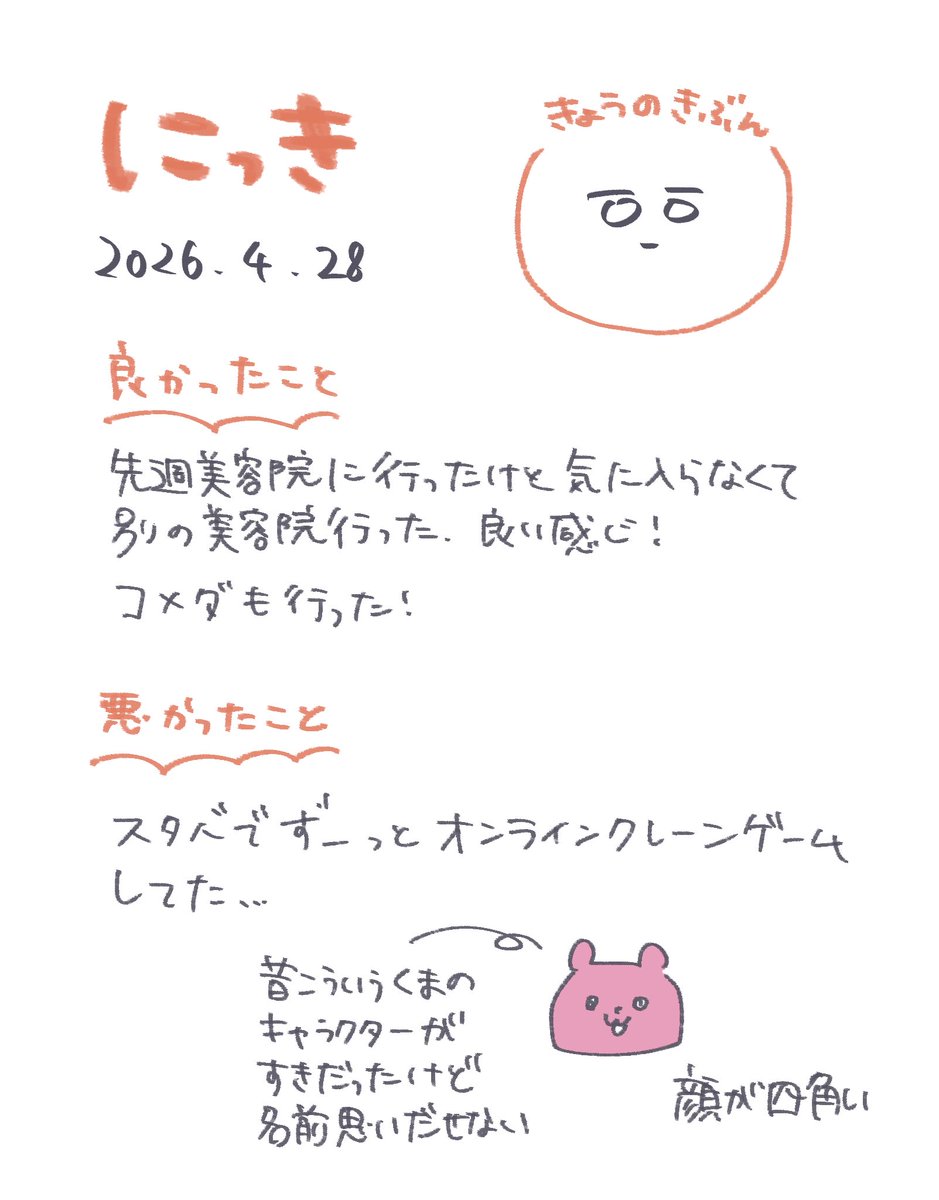 にっき
きょうのきぶん
2026.4.28
良かったこと
先週美容院に行ったけど気に入らなくて
別の美容院行った.良い感じ!
コメダも行った!
悪かったこと
スタバでずーっとオンラインクレーンゲーム
してた...
昔こういうくまの
キャラクターが
すきだったけど
名前思いだせない
顔が四角い